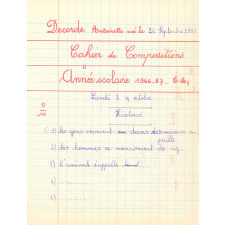 Decorde Antoinette née le 26 Septembre
Cahier de Compositions
Année scolaire 1966.67.
Lundi 24 octobre
Histoire
0
10
1) les gens vivaient dans des maisons en paille
2) les hommes se nourrissaient de riz
3) l'animal s'appelle
4)
5)